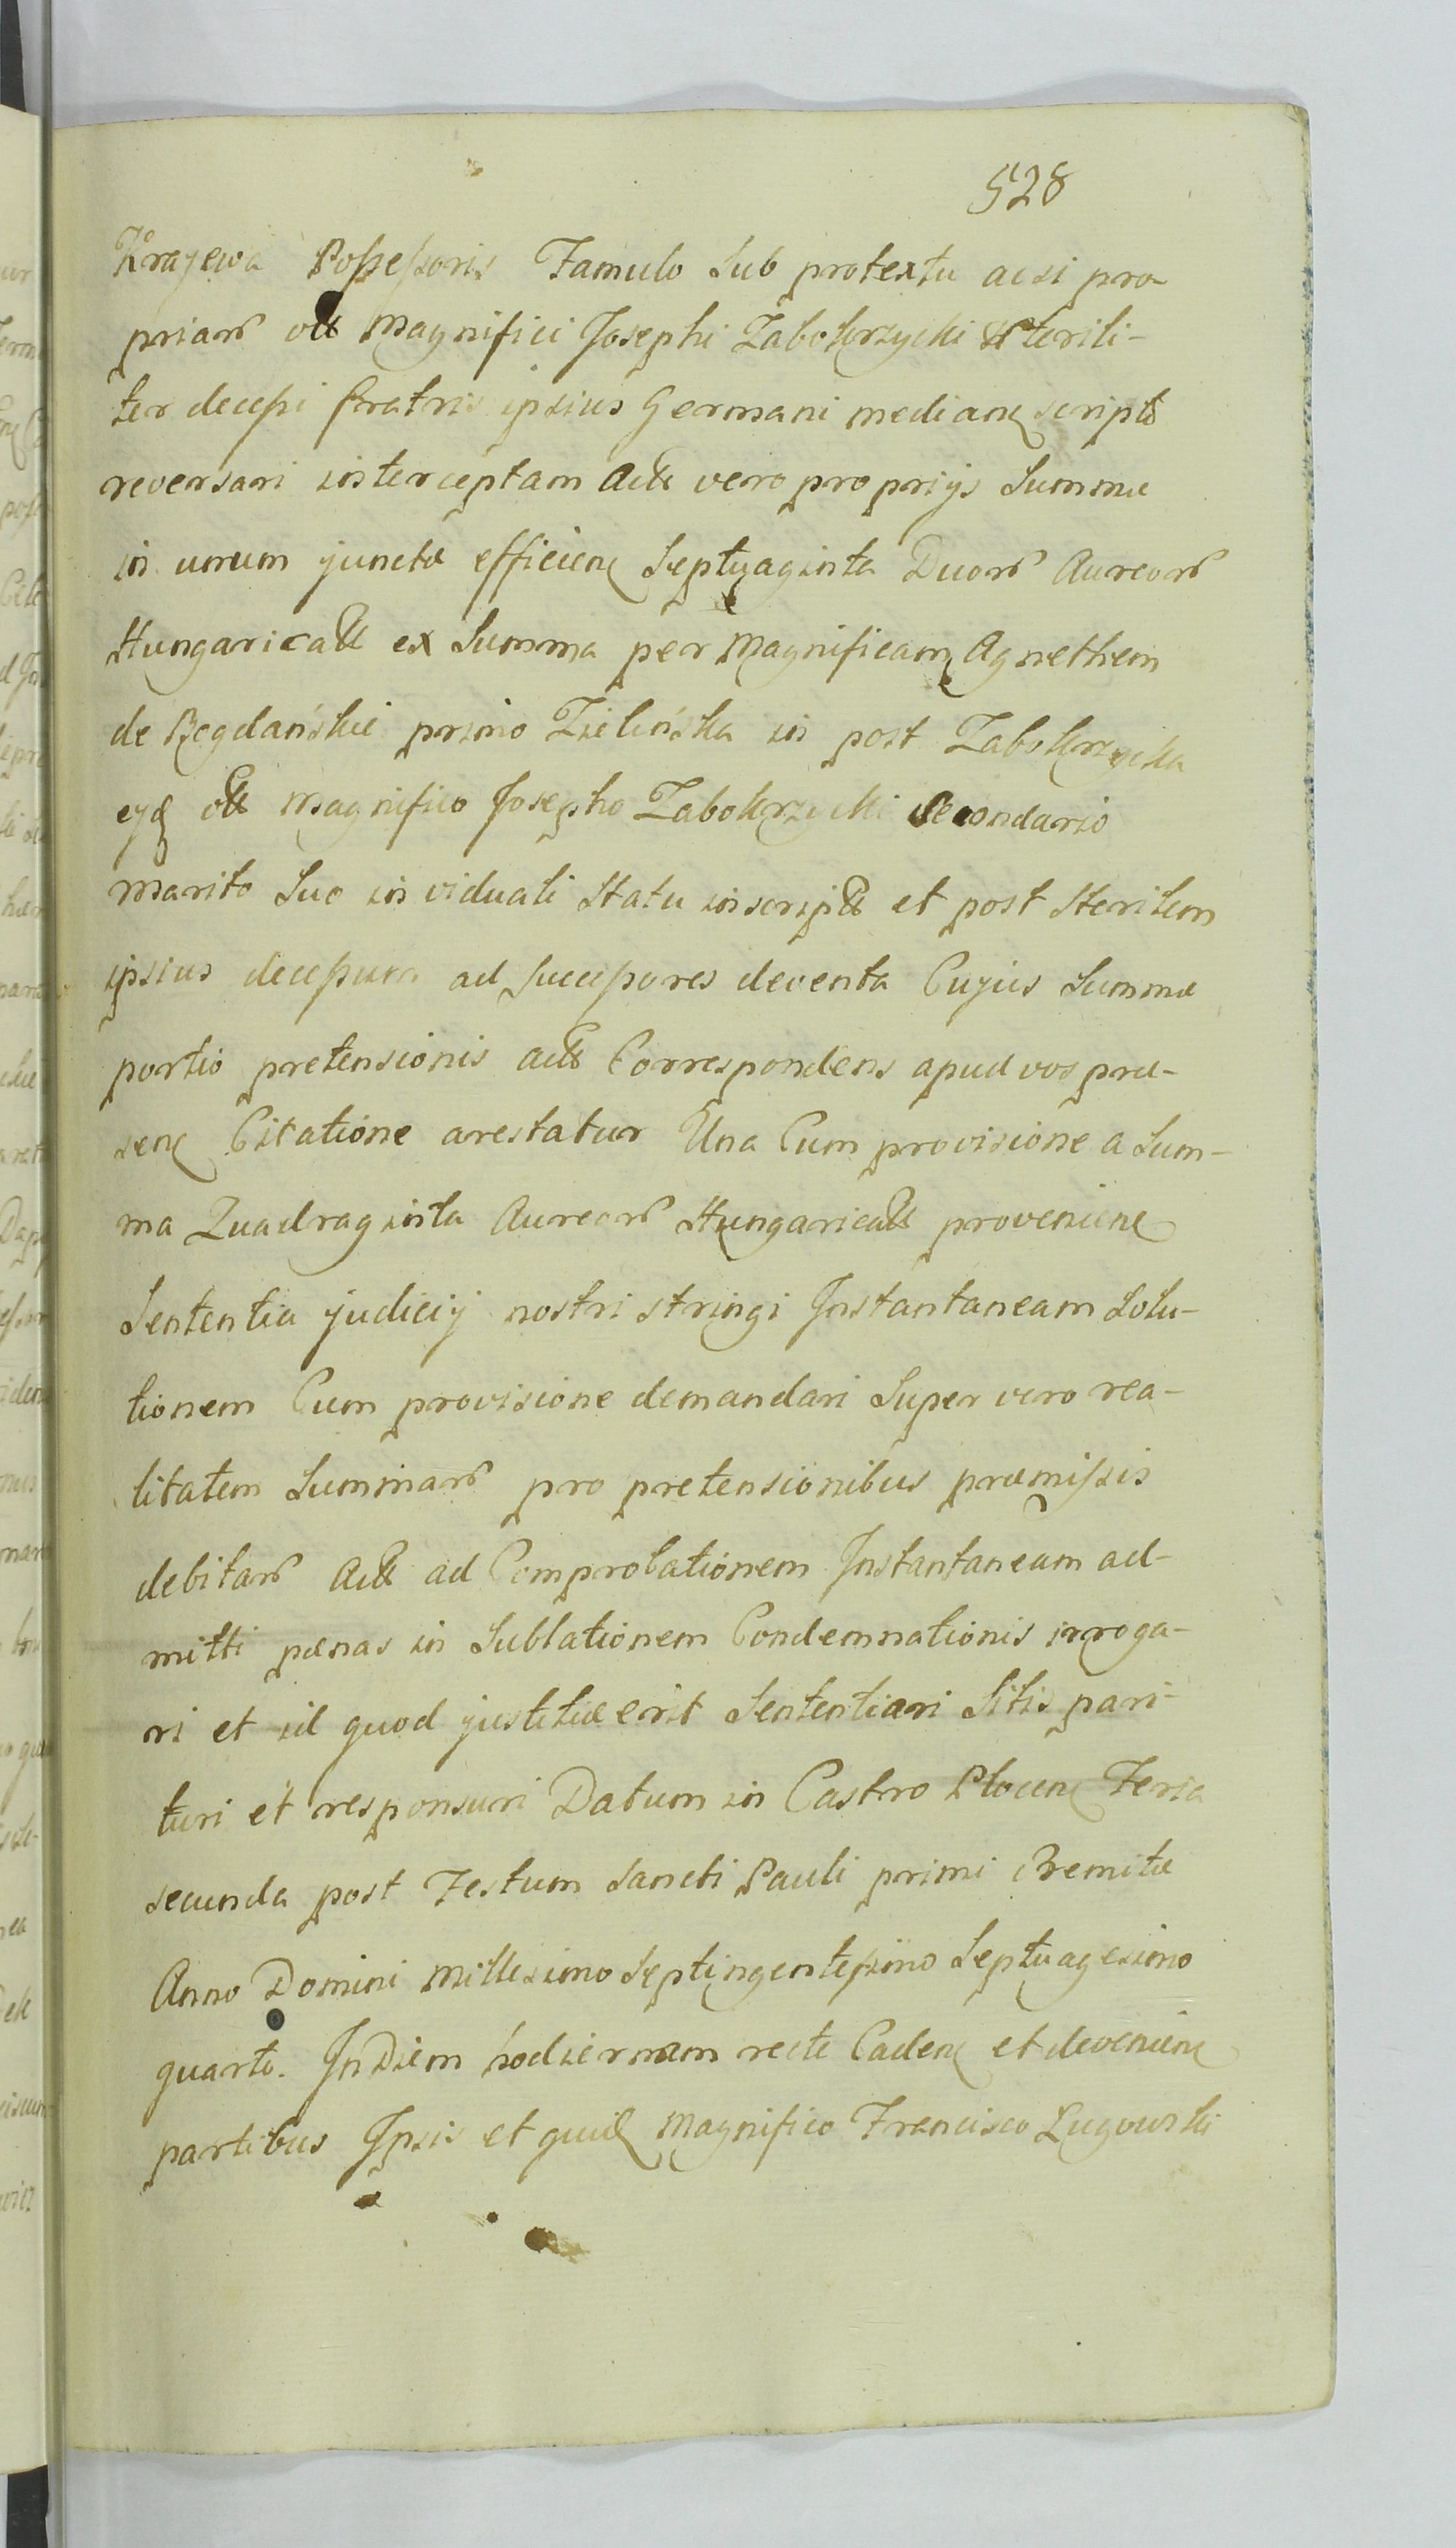 528
Krajewa Possessoris Famulo Sub protextu acsi pro-
priar̃ olĩ Magnifici Josephi Zabokrzycki Sterili-
ter decessi fratris ipsius Germani median̄ script
reversari interceptam Act vero proprijs Summæ
in unum junctæ efficien̄ Septuaginta Duor̃ Aureor̃
Hungarical ex Summa per Magnificam Agnethem
de Bogdańskie primo Zielińska in post Zabokrzycka
ejq̃ ol Magnifico Josepho Zabokrzycki Secondario
marito Suo in viduali Statu inscript et post Sterilem
ipsius decessum ad Successores deventa Cujus Summæ
portio pretensionis act Correspondens apud vos præ-
sen̄ Citatione arestatur Una Cum provisione a Sum-
ma Quadraginta Aureor̃ Hungarical provenien̄
Sententia judicij nostri stringi Instantaneam Solu-
tionem Cum provisione demandari Super vero rea-
litatem Summar̃ pro pretensionibus præmissis
debitar̃ Act ad Comprobationem Instantaneam ad-
mitti pænas in Sublationem Condemnationis irroga-
ri et id quod justitiæ erit Sententiari Sitis pari-
turi et responsuri Datum in Castro Plocen̄ Feria
secunda post Festum Sancti Pauli primi Eremitæ
Anno Domini Millesimo Septingentessimo Septuagesimo
quarto. In Diem hodiernam recte Caden̄ et devenien̄
partibus Ipsis et quid̃ Magnifico Francisco Lugowski